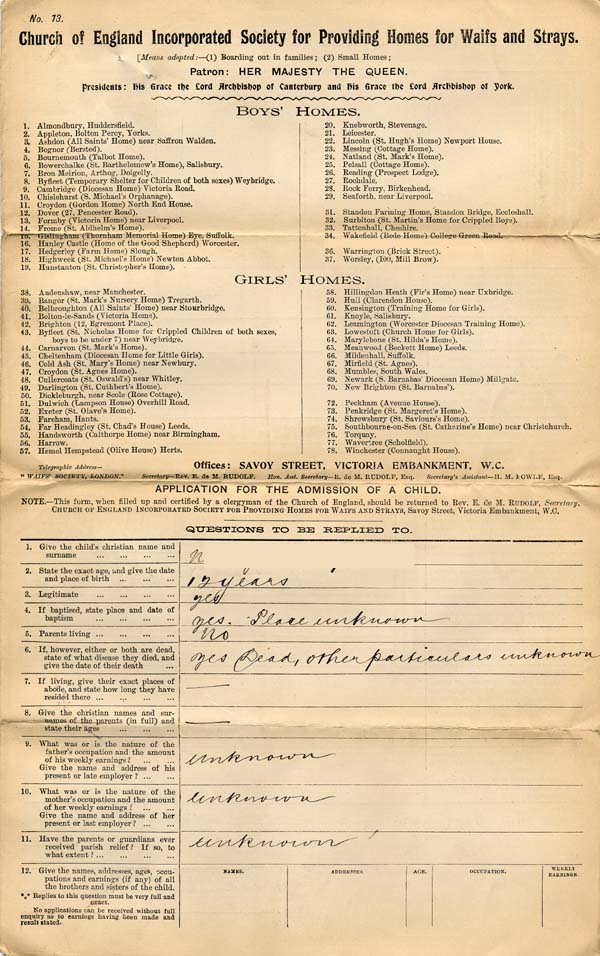 No. 73.
Church of England Incorporated Society for Providing Homes for Waifs and Strays.
[Means adopted:—(1) Boarding out in families; (2) Small Homes;
Patron: HER MAJESTY THE QUEEN.
Presidents: His Grace the Lord Archbishop of Canterbury and His Grace the Lord Archbishop of York.
BOYS' HOMES.
1. Almondbury, Huddersfield.
2. Appleton, Bolton Percy, Yorks.
3. Ashdon (All Saints' Home) near Saffron Walden.
4. Bognor (Bersted).
5. Bournemouth (Talbot Home).
6. Bowerchalke (St. Bartholomew's Home), Salisbury.
7. Bron Meirion, Arthog, Dolgelly.
8. Byfleet (Temporary Shelter for Children of both sexes) Weybridge.
9. Cambridge (Diocesan Home) Victoria Road.
10. Chislehurst (S. Michael's Orphanage).
11. Croydon (Gordon Home) North End House.
12. Dover (27, Pencester Road).
13. Formby (Victoria Home) near Liverpool.
14. Frome (St. Aldhelm's Home).
15. Gislingham (Thornham Memorial Home) Eye, Suffolk.
16. Hanley Castle (Home of the Good Shepherd) Worcester.
17. Hedgerley (Farm Home) Slough.
18. Highweek (St. Michael's Home) Newton Abbot.
19. Hunstanton (St. Christopher's Home).
20. Knebworth, Stevenage.
21. Leicester.
22. Lincoln (St. Hugh's Home) Newport House.
23. Messing (Cottage Home).
24. Natland (St. Mark's Home).
25. Pelsall (Cottage Home).
26. Reading (Prospect Lodge).
27. Rochdale.
28. Rock Ferry, Birkenhead.
29. Seaforth, near Liverpool.
31. Standon Farming Home, Standon Bridge, Eccleshall.
32. Surbiton (St. Martin's Home for Crippled Boys).
33. Tattenhall, Cheshire.
34. Wakefield (Bede Home) College Green Road.
36. Warrington (Brick Street).
37. Worsley, (109, Mill Brow).
GIRLS' HOMES.
38. Audenshaw, near Manchester.
39. Bangor (St. Mark's Nursery Home) Tregarth.
40. Belbroughton (All Saints' Home) near Stourbridge.
41. Bolton-le-Sands (Victoria Home).
42. Brighton (12, Egremont Place).
43. Byfleet (St. Nicholas Home for Crippled Children of both sexes,
boys to be under 7) near Weybridge.
44. Carnarvon (St. Mark's Home).
45. Cheltenham (Diocesan Home for Little Girls).
46. Cold Ash (St. Mary's Home) near Newbury.
47. Croydon (St. Agnes Home).
48. Cullercoats (St. Oswald's) near Whitley.
49. Darlington (St. Cuthbert's Home).
50. Dickleburgh, near Scole (Rose Cottage).
51. Dulwich (Lampson House) Overhill Road.
52. Exeter (St. Olave's Home).
53. Fareham, Hants.
54. Far Headingley (St. Chad's House) Leeds.
55. Handsworth (Calthorpe Home) near Birmingham.
56. Harrow.
57. Hemel Hempstead (Olive House) Herts.
58. Hillingdon Heath (Fir's Home) near Uxbridge.
59. Hull (Clarendon House).
60. Kensington (Training Home for Girls).
61. Knoyle, Salisbury.
62. Leamington (Worcester Diocesan Training Home).
63. Lowestoft (Church Home for Girls).
64. Marylebone (St. Hilda's Home).
65. Meanwood (Beckett Home) Leeds.
66. Mildenhall, Suffolk.
67. Mirfield (St. Agnes).
68. Mumbles, South Wales.
69. Newark (S. Barnabas' Diocesan Home) Millgate.
70. New Brighton (St. Barnabas').
72. Peckham (Avenue House).
73. Penkridge (St. Margaret's Home).
74. Shrewsbury (St. Saviour's Home).
75. Southbourne-on-Sea (St. Catharine's Home) near Christchurch.
76. Torquay.
77. Wavertree (Scholfield).
78. Winchester (Connaught House).
Telegraphic Address—
Offices: SAVOY STREET, VICTORIA EMBANKMENT, W.C.
"WAIFS' SOCIETY, LONDON." Secretary—Rev. E. de M. RUDOLF. Hon. Asst. Secretary—R. de M. RUDOLF, Esq. Secretary's Assistant—H. M. FOWLE, Esq.
APPLICATION FOR THE ADMISSION OF A CHILD.
NOTE.—This form, when filled up and certified by a clergyman of the Church of England, should be returned to Rev. E. de M. RUDOLF, Secretary,
CHURCH OF ENGLAND INCORPORATED SOCIETY FOR PROVIDING HOMES FOR WAIFS AND STRAYS, Savoy Street, Victoria Embankment, W.C.
QUESTIONS TO BE REPLIED TO.
1. Give the child's christian name and
surname ... ... ...
N
2. State the exact age, and give the date
and place of birth ... ... ...
12 years
3. Legitimate ... ... ... ...
yes
4. If baptised, state place and date of
baptism ... ... ... ...
yes. Place unknown
5. Parents living ... ... ... ...
No
6. If, however, either or both are dead,
state of what disease they died, and
give the date of their death ...
yes Dead, other particulars unknown
7. If living, give their exact places of
abode, and state how long they have
resided there ... ... ... ...
—
8. Give the christian names and sur-
names of the parents (in full) and
state their ages ... ... ...
—
9. What was or is the nature of the
father's occupation and the amount
of his weekly earnings? ... ...
Give the name and address of his
present or late employer? ... ...
unknown
10. What was or is the nature of the
mother's occupation and the amount
of her weekly earnings? ... ...
Give the name and address of her
present or last employer? ... ...
unknown
11. Have the parents or guardians ever
received parish relief? If so, to
what extent? ... ... ... ...
unknown
12. Give the names, addresses, ages, occu-
pations and earnings (if any) of all
the brothers and sisters of the child.
*** Replies to this question must be very full and
exact.
No applications can be received without full
enquiry as to earnings having been made and
result stated.
NAMES. ADDRESSES. AGE. OCCUPATION. WEEKLY EARNINGS.